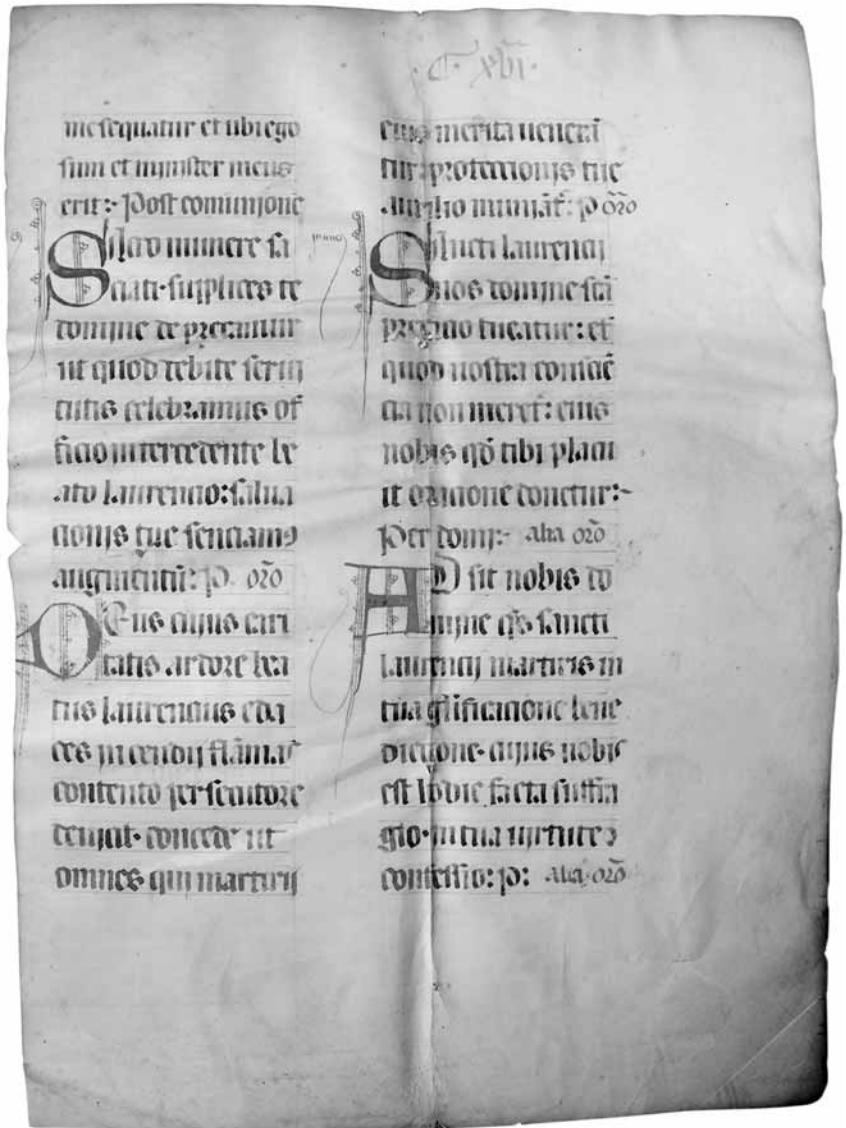 C. xvi.
me sequatur et ubi ego
sum et minister meus
erit:- Post comunione
Sacro munere sa
ciati supplices te
domine deprecamur
ut quod debite servi
tutis celebramus of
ficio intercedente be
ato laurencio: salua
cionis tue senciamus
augmentū: p. orō
Deus cuius cari
tatis ardore bea
tus laurencius eda
ces incendij flāmas
contento persecutore
deuicit. concede ut
omnes qui martirij
eius merita uenerā
tur: protectionis tue
auxilio muniāt: p orō
Sancti laurencij
nos domine scā
precacio tueatur: et
quod nostra conscie
cia non meret: eius
nobis qd tibi placu
it oracione donetur:-
Per domi:- alia orō
AD sit nobis do
mine qs sancti
laurencij martiris in
tua glificacione bene
dictione. cuius nobis
est hodie facta suffra
gio. in tua uirtute
confessio: p: alia orō